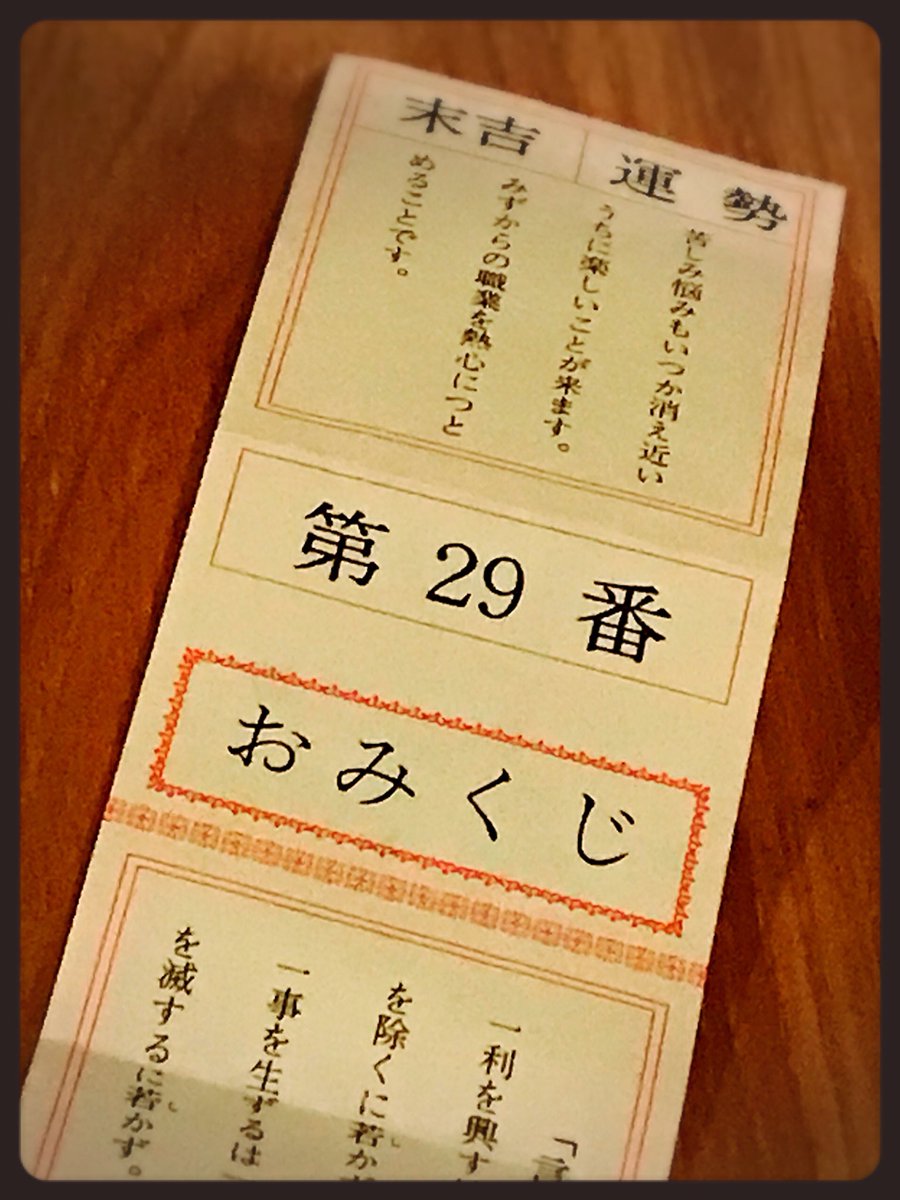 運勢
末吉
苦しみ悩みもいつか消え近い
うちに楽しいことが来ます。
みずからの職業を熱心につと
めることです。
第29番
おみくじ
一利を興す
を除くに若か
一事を生ずるは
を滅するに若かず。